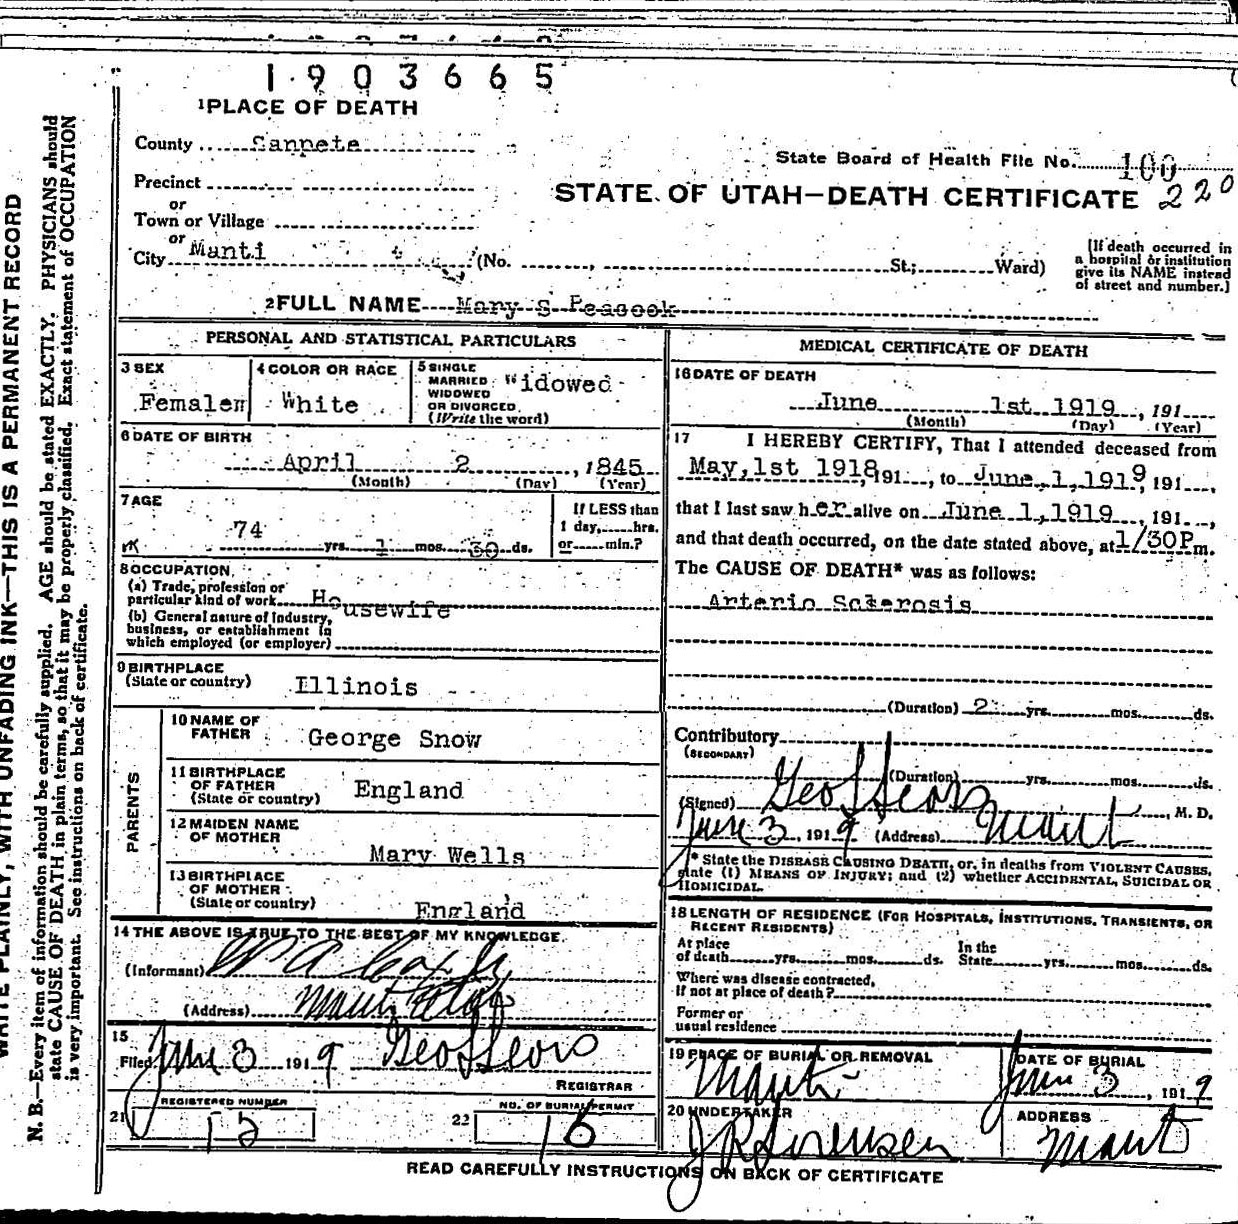 1903665
1 PLACE OF DEATH
County Sanpete
State Board of Health File No. 100
Precinct
STATE OF UTAH—DEATH CERTIFICATE 220
or
Town or Village
or
City Manti (No. , St.; Ward)
[If death occurred in a hospital or institution give its NAME instead of street and number.]
2 FULL NAME Mary S Peacock
PERSONAL AND STATISTICAL PARTICULARS
3 SEX
Female
4 COLOR OR RACE
White
5 SINGLE MARRIED WIDOWED OR DIVORCED (Write the word)
Widowed
6 DATE OF BIRTH
April 2, 1845
(Month) (Day) (Year)
7 AGE
74 yrs. 1 mos. 30 ds.
If LESS than 1 day, hrs. or min.?
8 OCCUPATION
(a) Trade, profession or particular kind of work Housewife
(b) General nature of industry, business, or establishment in which employed (or employer)
9 BIRTHPLACE
(State or country) Illinois
PARENTS
10 NAME OF FATHER George Snow
11 BIRTHPLACE OF FATHER (State or country) England
12 MAIDEN NAME OF MOTHER Mary Wells
13 BIRTHPLACE OF MOTHER (State or country) England
14 THE ABOVE IS TRUE TO THE BEST OF MY KNOWLEDGE.
(Informant)
(Address) Manti Utah
15
Filed June 3 1919
REGISTRAR
REGISTERED NUMBER
21 15
NO. OF BURIAL PERMIT
22 16
MEDICAL CERTIFICATE OF DEATH
16 DATE OF DEATH
June 1st 1919, 191
(Month) (Day) (Year)
17 I HEREBY CERTIFY, That I attended deceased from
May, 1st 1918, 191, to June, 1, 1919, 191,
that I last saw her alive on June 1, 1919, 191,
and that death occurred, on the date stated above, at 1/30P m.
The CAUSE OF DEATH* was as follows:
Arterio Sclerosis
(Duration) 2 yrs. mos. ds.
Contributory
(SECONDARY)
(Duration) yrs. mos. ds.
(Signed) , M. D.
June 3, 1919 (Address) Manti
* State the DISEASE CAUSING DEATH, or, in deaths from VIOLENT CAUSES,
state (1) MEANS OF INJURY; and (2) whether ACCIDENTAL, SUICIDAL OR
HOMICIDAL.
18 LENGTH OF RESIDENCE (FOR HOSPITALS, INSTITUTIONS, TRANSIENTS, OR
RECENT RESIDENTS)
At place of death yrs. mos. ds. In the State yrs. mos. ds.
Where was disease contracted,
If not at place of death?
Former or
usual residence
19 PLACE OF BURIAL OR REMOVAL
Manti
DATE OF BURIAL
June 3, 1919
20 UNDERTAKER
J R Sorensen
ADDRESS
Manti
READ CAREFULLY INSTRUCTIONS ON BACK OF CERTIFICATE
WRITE PLAINLY, WITH UNFADING INK—THIS IS A PERMANENT RECORD
N. B.—Every item of information should be carefully supplied. AGE should be stated EXACTLY. PHYSICIANS should
state CAUSE OF DEATH in plain terms, so that it may be properly classified. Exact statement of OCCUPATION
is very important. See instructions on back of certificate.